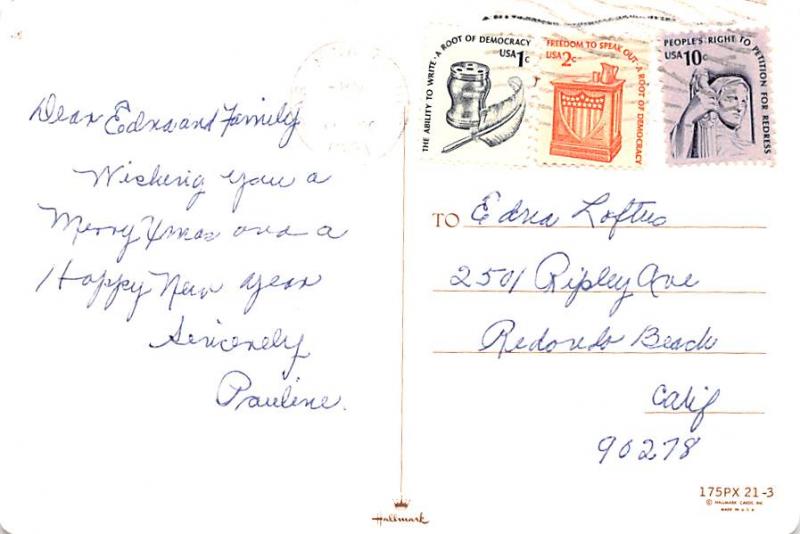 Dear Edna and Family
Wishing you a
Merry Xmas and a
Happy New Year
Sincerely
Pauline.
THE ABILITY TO WRITE · A ROOT OF DEMOCRACY
USA 1c
FREEDOM TO SPEAK OUT · A ROOT OF DEMOCRACY
USA 2c
PEOPLE'S RIGHT TO PETITION FOR REDRESS
USA 10c
TO Edna Loftus
2501 Ripley Ave
Redondo Beach
Calif
90278
175PX 21-3
© HALLMARK CARDS, INC.
MADE IN U.S.A.
Hallmark